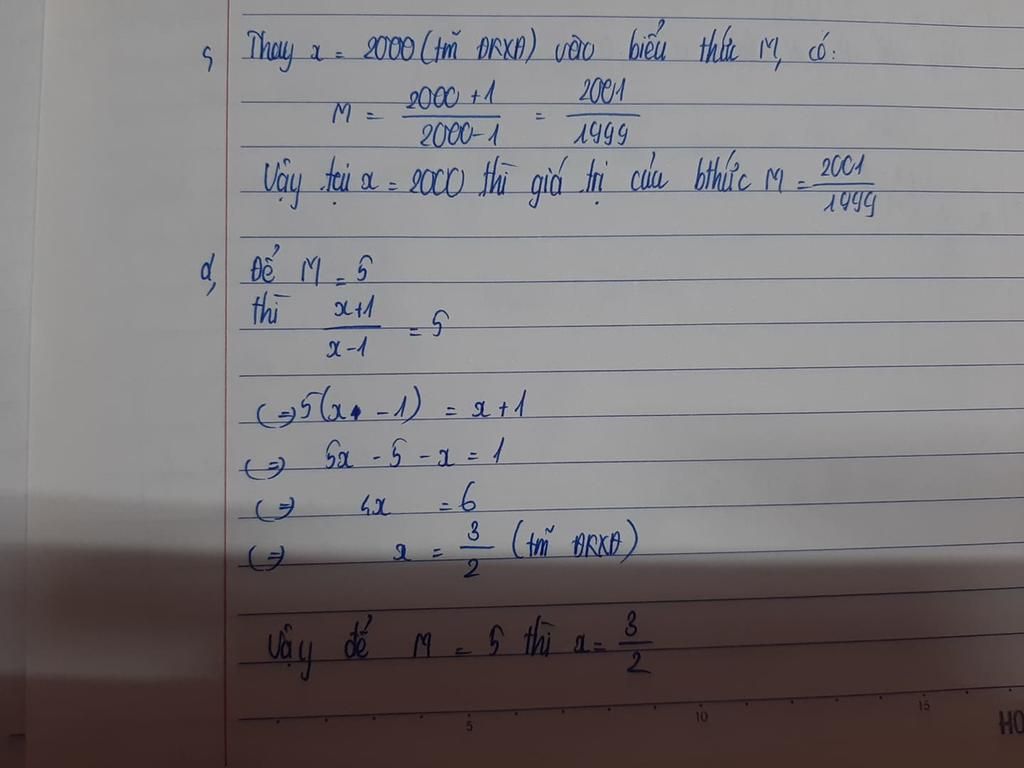 c, Thay x = 2000 (tm ĐKXĐ) vào biểu thức M, có:
M = \frac{2000 + 1}{2000 - 1} = \frac{2001}{1999}
Vậy tại x = 2000 thì giá trị của bthức M = \frac{2001}{1999}
d, Để M = 5
thì \frac{x+1}{x-1} = 5
(=) 5(x - 1) = x + 1
(=) 5x - 5 - x = 1
(=) 4x = 6
(=) x = \frac{3}{2} (tm ĐKXĐ)
Vậy để M = 5 thì x = \frac{3}{2}
5 10 15
HO